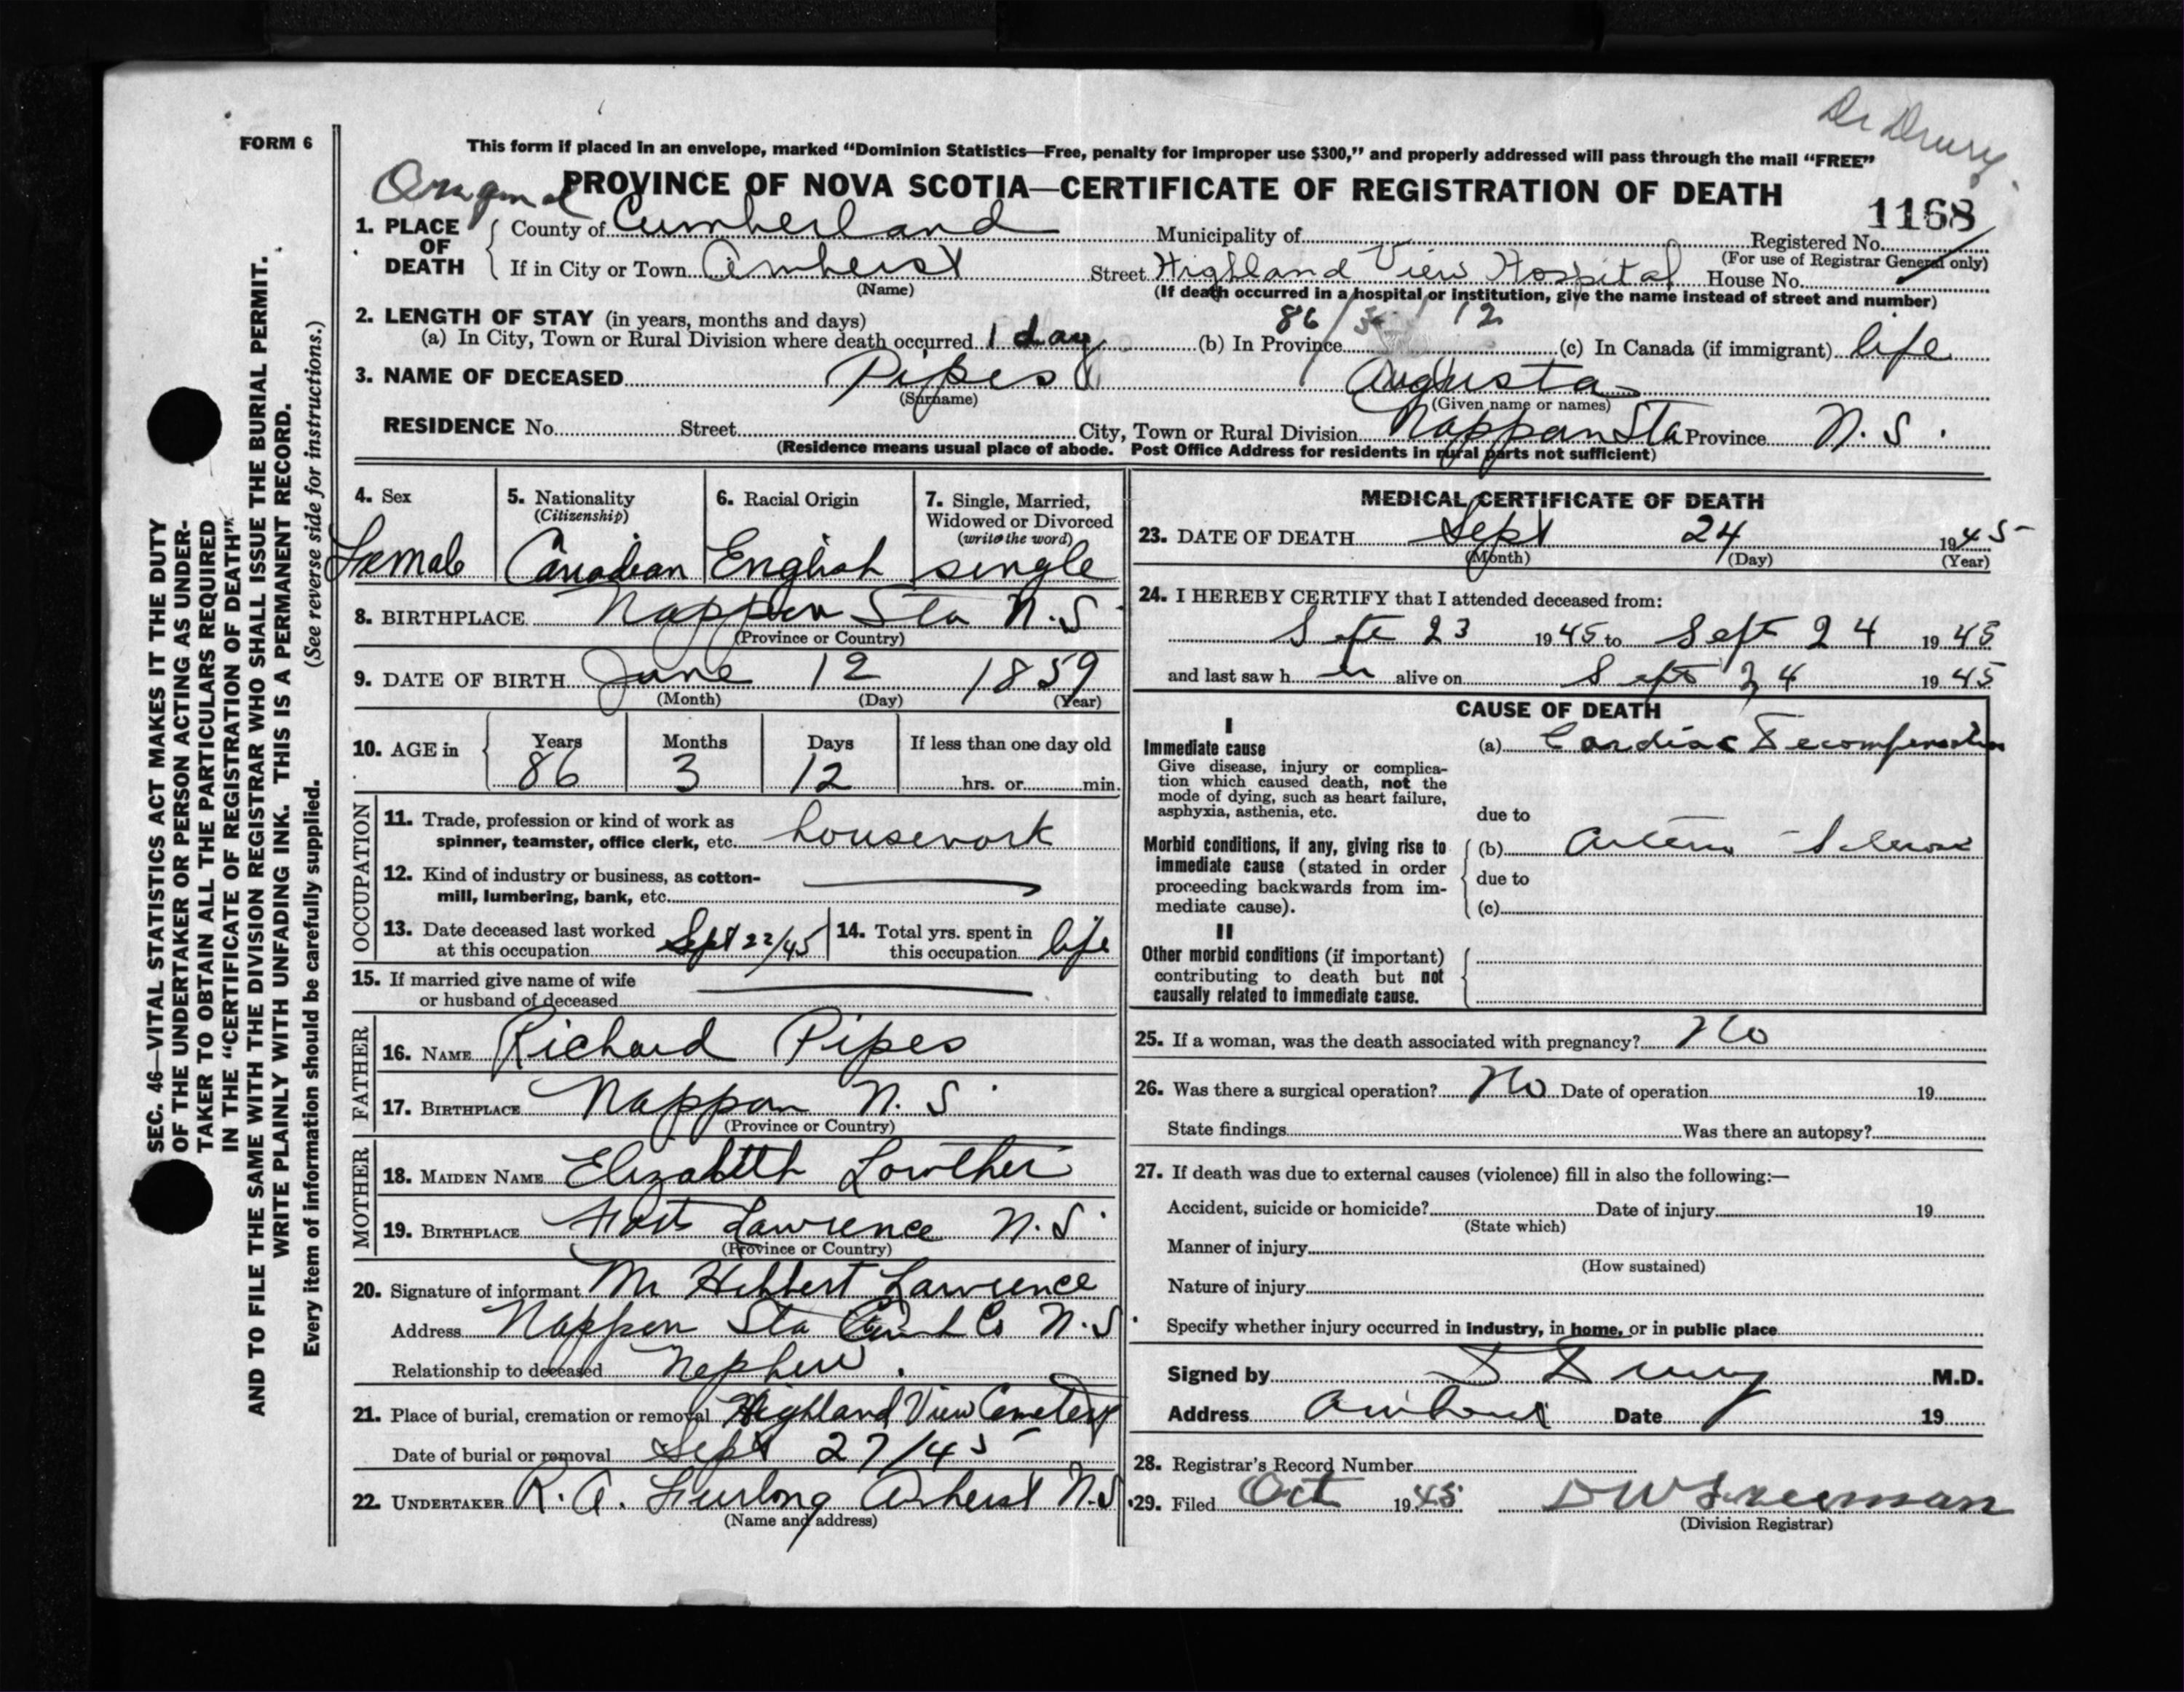 Dr Drury
FORM 6
This form if placed in an envelope, marked “Dominion Statistics—Free, penalty for improper use $300,” and properly addressed will pass through the mail “FREE”
Original
PROVINCE OF NOVA SCOTIA—CERTIFICATE OF REGISTRATION OF DEATH
1168
1. PLACE OF DEATH { County of Cumberland Municipality of Registered No.
(For use of Registrar General only)
If in City or Town Amherst Street Highland View Hospital House No.
(Name) (If death occurred in a hospital or institution, give the name instead of street and number)
2. LENGTH OF STAY (in years, months and days) 86/3/12
(a) In City, Town or Rural Division where death occurred 1 day (b) In Province (c) In Canada (if immigrant) life
3. NAME OF DECEASED Pipes Augusta
(Surname) (Given name or names)
RESIDENCE No. Street City, Town or Rural Division Nappan Sta Province N. S.
(Residence means usual place of abode. Post Office Address for residents in rural parts not sufficient)
4. Sex 5. Nationality (Citizenship) 6. Racial Origin 7. Single, Married, Widowed or Divorced (write the word)
Female Canadian English single
8. BIRTHPLACE Nappan Sta N.S
(Province or Country)
9. DATE OF BIRTH June 12 1859
(Month) (Day) (Year)
10. AGE in { Years Months Days If less than one day old
86 3 12 hrs. or min.
OCCUPATION
11. Trade, profession or kind of work as
spinner, teamster, office clerk, etc. housework
12. Kind of industry or business, as cotton-
mill, lumbering, bank, etc.
13. Date deceased last worked at this occupation Sept 22/45 14. Total yrs. spent in this occupation life
15. If married give name of wife
or husband of deceased
FATHER
16. NAME Richard Pipes
17. BIRTHPLACE Nappan N. S.
(Province or Country)
MOTHER
18. MAIDEN NAME Elizabeth Lowther
19. BIRTHPLACE Fort Lawrence N.S.
(Province or Country)
20. Signature of informant Mr Hibbert Lawrence
Address Nappan Sta Cumb Co N.S.
Relationship to deceased Nephew.
21. Place of burial, cremation or removal Highland View Cemetery
Date of burial or removal Sept 27/45
22. UNDERTAKER R. A. Furlong Amherst N.S.
(Name and address)
MEDICAL CERTIFICATE OF DEATH
23. DATE OF DEATH Sept 24 1945
(Month) (Day) (Year)
24. I HEREBY CERTIFY that I attended deceased from:
Sept 23 1945 to Sept 24 1945
and last saw h er alive on Sept 24 1945
CAUSE OF DEATH
I
Immediate cause (a) Cardiac Decompensation
Give disease, injury or complica-
tion which caused death, not the
mode of dying, such as heart failure,
asphyxia, asthenia, etc. due to
Morbid conditions, if any, giving rise to (b) Arterio-Sclerosis
immediate cause (stated in order
proceeding backwards from im- due to
mediate cause). (c)
II
Other morbid conditions (if important)
contributing to death but not
causally related to immediate cause.
25. If a woman, was the death associated with pregnancy? No
26. Was there a surgical operation? No Date of operation 19
State findings Was there an autopsy?
27. If death was due to external causes (violence) fill in also the following:—
Accident, suicide or homicide? Date of injury 19
(State which)
Manner of injury
(How sustained)
Nature of injury
Specify whether injury occurred in industry, in home, or in public place
Signed by D Drury M.D.
Address Amherst Date 19
28. Registrar's Record Number
29. Filed Oct 1945 D W Freeman
(Division Registrar)
SEC. 46—VITAL STATISTICS ACT MAKES IT THE DUTY
OF THE UNDERTAKER OR PERSON ACTING AS UNDER-
TAKER TO OBTAIN ALL THE PARTICULARS REQUIRED
IN THE “CERTIFICATE OF REGISTRATION OF DEATH”
AND TO FILE THE SAME WITH THE DIVISION REGISTRAR WHO SHALL ISSUE THE BURIAL PERMIT.
WRITE PLAINLY WITH UNFADING INK. THIS IS A PERMANENT RECORD.
Every item of information should be carefully supplied. (See reverse side for instructions.)